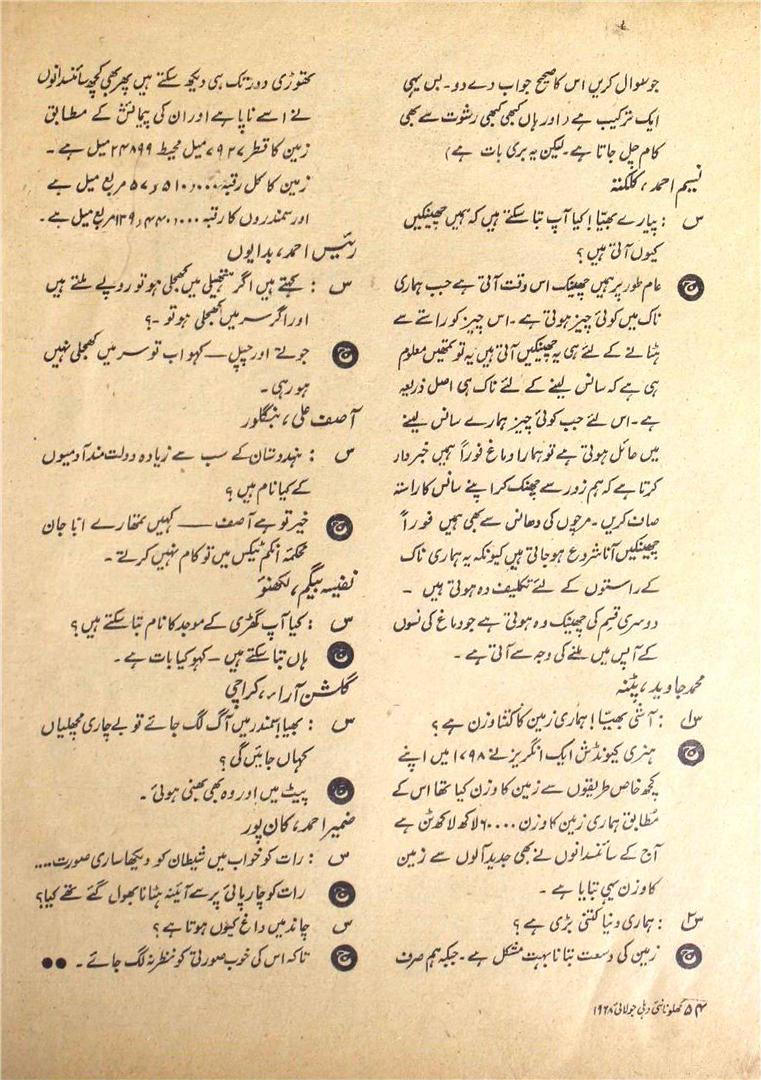 جو سوال کریں اس کا صحیح جواب دے دو۔ بس یہی
ایک ترکیب ہے (اور ہاں کبھی کبھی رشوت سے بھی
کام چل جاتا ہے۔ لیکن یہ بری بات ہے)
نسیم احمد، کلکتہ
س : پیارے بھیّا! کیا آپ بتا سکتے ہیں کہ ہمیں چھینکیں
کیوں آتی ہیں؟
ج عام طور پر ہمیں چھینک اس وقت آتی ہے جب ہماری
ناک میں کوئی چیز ہوتی ہے۔ اس چیز کو راستے سے
ہٹانے کے لئے ہی یہ چھینکیں آتی ہیں یہ تو تمھیں معلوم
ہی ہے کہ سانس لینے کے لئے ناک ہی اصل ذریعہ
ہے۔ اس لئے جب کوئی چیز ہمارے سانس لینے
میں حائل ہوتی ہے تو ہمارا دماغ فوراً ہمیں خبردار
کرتا ہے کہ ہم زور سے چھینک کر اپنے سانس کا راستہ
صاف کریں۔ مرچوں کی دھانس سے بھی ہمیں فوراً
چھینکیں آنا شروع ہو جاتی ہیں کیونکہ یہ ہماری ناک
کے راستوں کے لئے تکلیف دہ ہوتی ہیں ۔
دوسری قسم کی چھینک وہ ہوتی ہے جو دماغ کی نسوں
کے آپس میں ملنے کی وجہ سے آتی ہے۔
محمد جاوید، پٹنہ
س۱ : آشی بھیّا! ہماری زمین کا کتنا وزن ہے؟
ج ہنری کیونڈش ایک انگریز نے ۱۷۹۸ میں اپنے
کچھ خاص طریقوں سے زمین کا وزن کیا تھا اس کے
مطابق ہماری زمین کا وزن ۶۰۰۰۰ لاکھ لاکھ ٹن ہے
آج کے سائنسدانوں نے بھی جدید آلوں سے زمین
کا وزن یہی بتایا ہے۔
س۲ : ہماری دنیا کتنی بڑی ہے؟
ج زمین کی وسعت بتانا بہت مشکل ہے۔ جبکہ ہم صرف
تھوڑی دور تک ہی دیکھ سکتے ہیں پھر بھی کچھ سائنسدانوں
نے اسے ناپا ہے اور ان کی پیمائش کے مطابق
زمین کا قطر ۷۹۲۷ میل محیط ۲۴۸۹۹ میل ہے۔
زمین کا کل رقبہ ۵۷،۵۱۰،۰۰۰ مربع میل ہے
اور سمندروں کا رقبہ ۱۳۹،۴۴۰،۰۰۰ مربع میل ہے۔
رئیس احمد، بدایوں
س : کہتے ہیں اگر ہتھیلی میں کھجلی ہو تو روپے ملتے ہیں
اور اگر سر میں کھجلی ہو تو۔؟
ج جوتے اور چپل — کہو اب تو سر میں کھجلی نہیں
ہو رہی۔
آصف علی، بنگلور
س : ہندوستان کے سب سے زیادہ دولت مند آدمیوں
کے کیا نام ہیں؟
ج خیر تو ہے آصف — کہیں تمھارے ابّا جان
محکمہ انکم ٹیکس میں تو کام نہیں کرتے۔
نفیسہ بیگم، لکھنؤ
س : کیا آپ گھڑی کے موجد کا نام بتا سکتے ہیں؟
ج ہاں بتا سکتے ہیں۔ کہو کیا بات ہے۔
گلشن آراء، کراچی
س : بھیا! سمندر میں آگ لگ جائے تو بے چاری مچھلیاں
کہاں جائیں گی؟
ج پیٹ میں اور وہ بھی بھنی ہوئی۔
ضمیر احمد، کان پور
س : رات کو خواب میں شیطان کو دیکھا ساری صورت....
ج رات کو چارپائی پر سے آئینہ ہٹانا بھول گئے تھے کیا؟
س چاند میں داغ کیوں ہوتا ہے؟
ج تاکہ اس کی خوب صورتی کو نظر نہ لگ جائے۔ ●●
۵۴ کھلونا نئی دہلی جولائی ۱۹۶۸